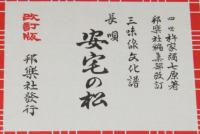 四世杵家彌七原著
邦樂社編集部改訂
三味線文化譜
長唄
安宅の松
改訂版
邦樂社發行